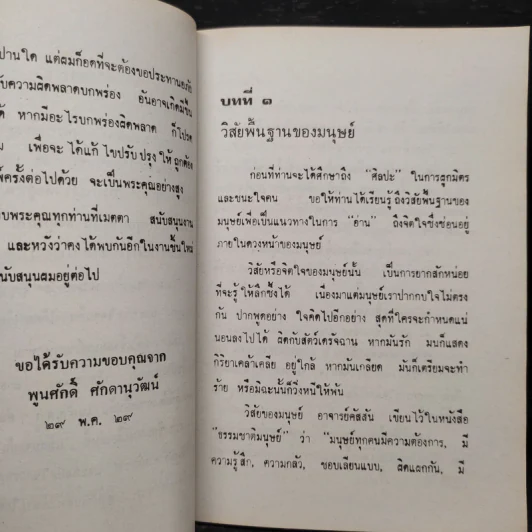 ปานใด แต่ผมก็อดที่จะต้องขอประทานอภัย
บความผิดพลาดบกพร่อง อันอาจเกิดมีขึ้น
ด้ หากมีอะไรบกพร่องผิดพลาด ก็โปรด
เพื่อจะได้แก้ไขปรับปรุงให้ถูกต้อง
ครั้งต่อไปด้วย จะเป็นพระคุณอย่างสูง
บพระคุณทุกท่านที่เมตตา สนับสนุนงาน
และหวังว่าคงได้พบกันอีกในงานชิ้นใหม่
นับสนุนผมอยู่ต่อไป
ขอได้รับความขอบคุณจาก
พูนศักดิ์ ศักดานุวัฒน์
๒๙ พ.ค. ๒๙
บทที่ ๑
วิสัยพื้นฐานของมนุษย์
ก่อนที่ท่านจะได้ศึกษาถึง "ศิลปะ" ในการผูกมิตร
และชนะใจคน ขอให้ท่านได้เรียนรู้ถึงวิสัยพื้นฐานของ
มนุษย์เพื่อเป็นแนวทางในการ "อ่าน" ถึงจิตใจซึ่งซ่อนอยู่
ภายในดวงหน้าของมนุษย์
วิสัยหรือจิตใจของมนุษย์นั้น เป็นการยากสักหน่อย
ที่จะรู้ให้ลึกซึ้งได้ เนื่องมาแต่มนุษย์เราปากกับใจไม่ตรง
กัน ปากพูดอย่าง ใจคิดไปอีกอย่าง สุดที่ใครจะกำหนดแน่
นอนลงไปได้ ผิดกับสัตว์เดรัจฉาน หากมันรัก มันก็แสดง
กิริยาเคล้าเคลีย อยู่ใกล้ หากมันเกลียด มันก็เตรียมจะทำ
ร้าย หรือมิฉะนั้นก็วิ่งหนีให้พ้น
วิสัยของมนุษย์ อาจารย์คัสสัน เขียนไว้ในหนังสือ
"ธรรมชาติมนุษย์" ว่า "มนุษย์ทุกคนมีความต้องการ, มี
ความรู้สึก, ความกลัว, ชอบเลียนแบบ, ผิดแผกกัน, มี